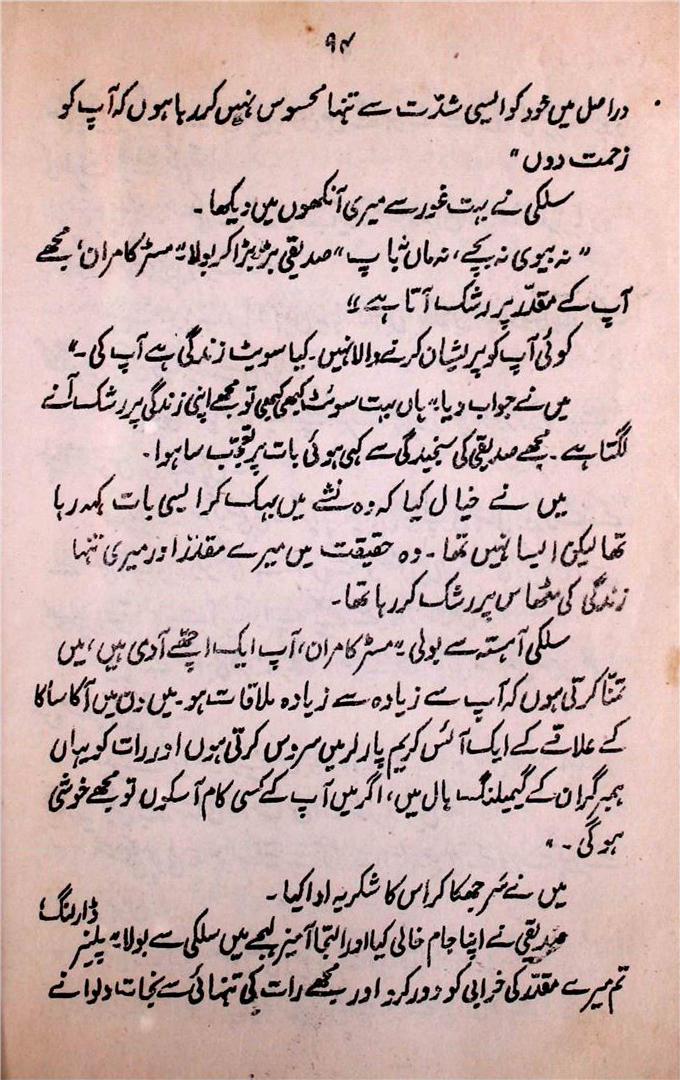 ۹۴
دراصل میں خود کو ایسی شدّت سے تنہا محسوس نہیں کر رہا ہوں کہ آپ کو
زحمت دوں"
سلکی نے بہت غور سے میری آنکھوں میں دیکھا۔
"نہ بیوی نہ بچے، نہ ماں نہ باپ" صدیقی بڑبڑا کر بولا "مسٹر کامران، مجھے
آپ کے مقدّر پر رشک آتا ہے"
کوئی آپ کو پریشان کرنے والا نہیں۔ کیا سویٹ زندگی ہے آپ کی۔"
میں نے جواب دیا "ہاں بہت سوئٹ کبھی کبھی تو مجھے اپنی زندگی پر رشک آنے
لگتا ہے۔ مجھے صدیقی کی سنجیدگی سے کہی ہوئی بات پر تعجّب سا ہوا۔
میں نے خیال کیا کہ وہ نشے میں بہک کر ایسی بات کہہ رہا
تھا لیکن ایسا نہیں تھا۔ وہ حقیقت میں میرے مقدّر اور میری تنہا
زندگی کی مٹھاس پر رشک کر رہا تھا۔
سلکی آہستہ سے بولی "مسٹر کامران، آپ ایک اچھے آدمی ہیں، میں
تمنّا کرتی ہوں کہ آپ سے زیادہ سے زیادہ ملاقات ہو۔ میں دن میں آکاساکا
کے علاقے کے ایک آئس کریم پارلر میں سروس کرتی ہوں اور رات کو یہاں
ہمبرگران کے گیمبلنگ ہال میں، اگر میں آپ کے کسی کام آسکوں تو مجھے خوشی
ہوگی۔"
میں نے سَر جھکا کر اس کا شکریہ ادا کیا۔
صدیقی نے اپنا جام خالی کیا اور التجا آمیز لہجے میں سلکی سے بولا "پلیز ڈارلنگ!
تم میرے مقدّر کی خرابی کو دور کرو اور مجھے رات کی تنہائی سے نجات دلوانے